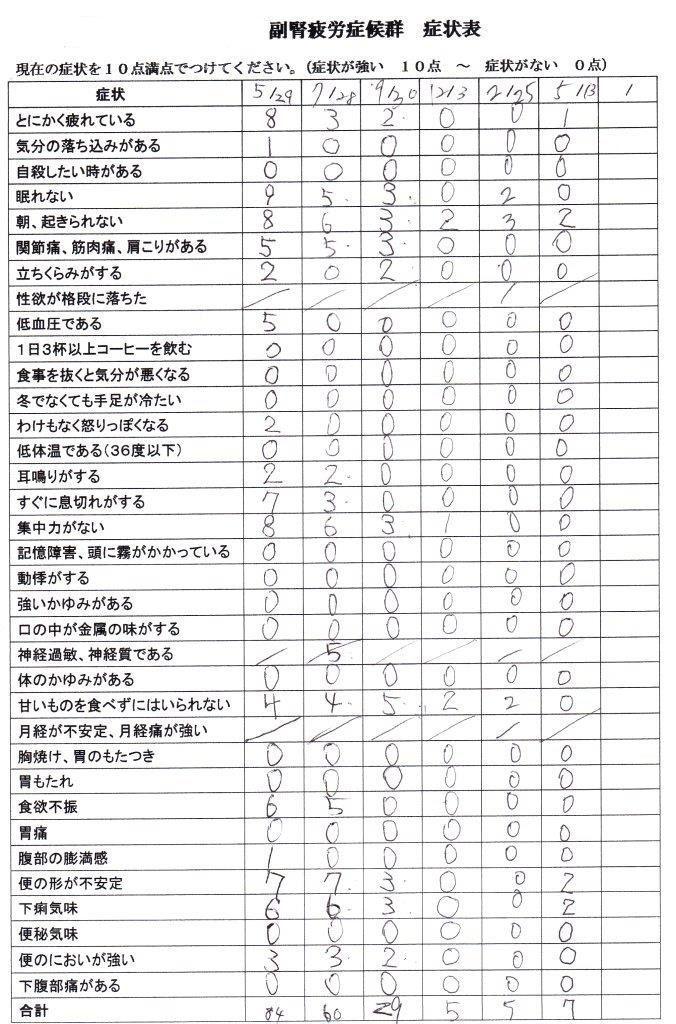 副腎疲労症候群　症状表
現在の症状を１０点満点でつけてください。（症状が強い　１０点　～　症状がない　０点）
症状 5/29 7/28 9/30 12/3 2/25 5/13 /
とにかく疲れている 8 3 2 0 0 1
気分の落ち込みがある 1 0 0 0 0 0
自殺したい時がある 0 0 0 0 0 0
眠れない 9 5 3 0 2 0
朝、起きられない 8 6 3 2 3 2
関節痛、筋肉痛、肩こりがある 5 5 3 0 0 0
立ちくらみがする 2 0 2 0 0 0
性欲が格段に落ちた / / / / / /
低血圧である 5 0 0 0 0 0
１日３杯以上コーヒーを飲む 0 0 0 0 0 0
食事を抜くと気分が悪くなる 0 0 0 0 0 0
冬でなくても手足が冷たい 0 0 0 0 0 0
わけもなく怒りっぽくなる 2 0 0 0 0 0
低体温である（３６度以下） 0 0 0 0 0 0
耳鳴りがする 2 2 0 0 0 0
すぐに息切れがする 7 3 0 0 0 0
集中力がない 8 6 3 1 0 0
記憶障害、頭に霧がかかっている 0 0 0 0 0 0
動悸がする 0 0 0 0 0 0
強いかゆみがある 0 0 0 0 0 0
口の中が金属の味がする 0 0 0 0 0 0
神経過敏、神経質である / 5 / / / /
体のかゆみがある 0 0 0 0 0 0
甘いものを食べずにはいられない 4 4 5 2 2 0
月経が不安定、月経痛が強い / / / / / /
胸焼け、胃のもたつき 0 0 0 0 0 0
胃もたれ 0 0 0 0 0 0
食欲不振 6 5 0 0 0 0
胃痛 0 0 0 0 0 0
腹部の膨満感 1 0 0 0 0 0
便の形が不安定 7 7 3 0 0 2
下痢気味 6 6 3 0 0 2
便秘気味 0 0 0 0 0 0
便のにおいが強い 3 3 2 0 0 0
下腹部痛がある 0 0 0 0 0 0
合計 84 60 29 5 5 7